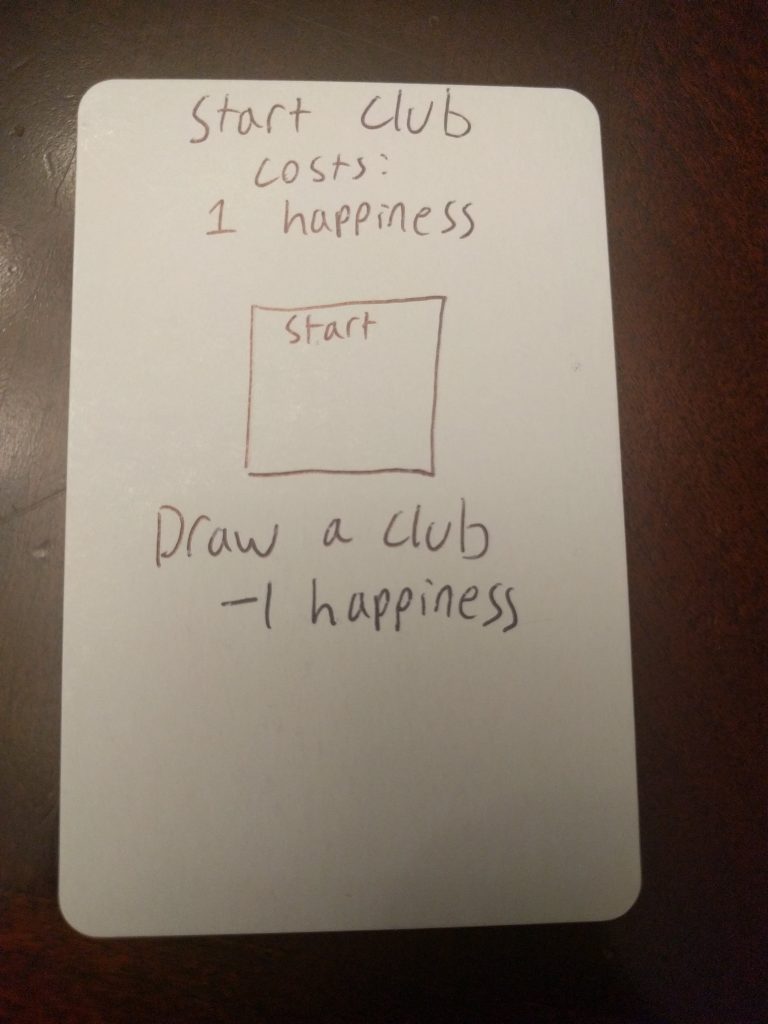 Start Club
costs:
1 happiness
Start
Draw a club
-1 happiness